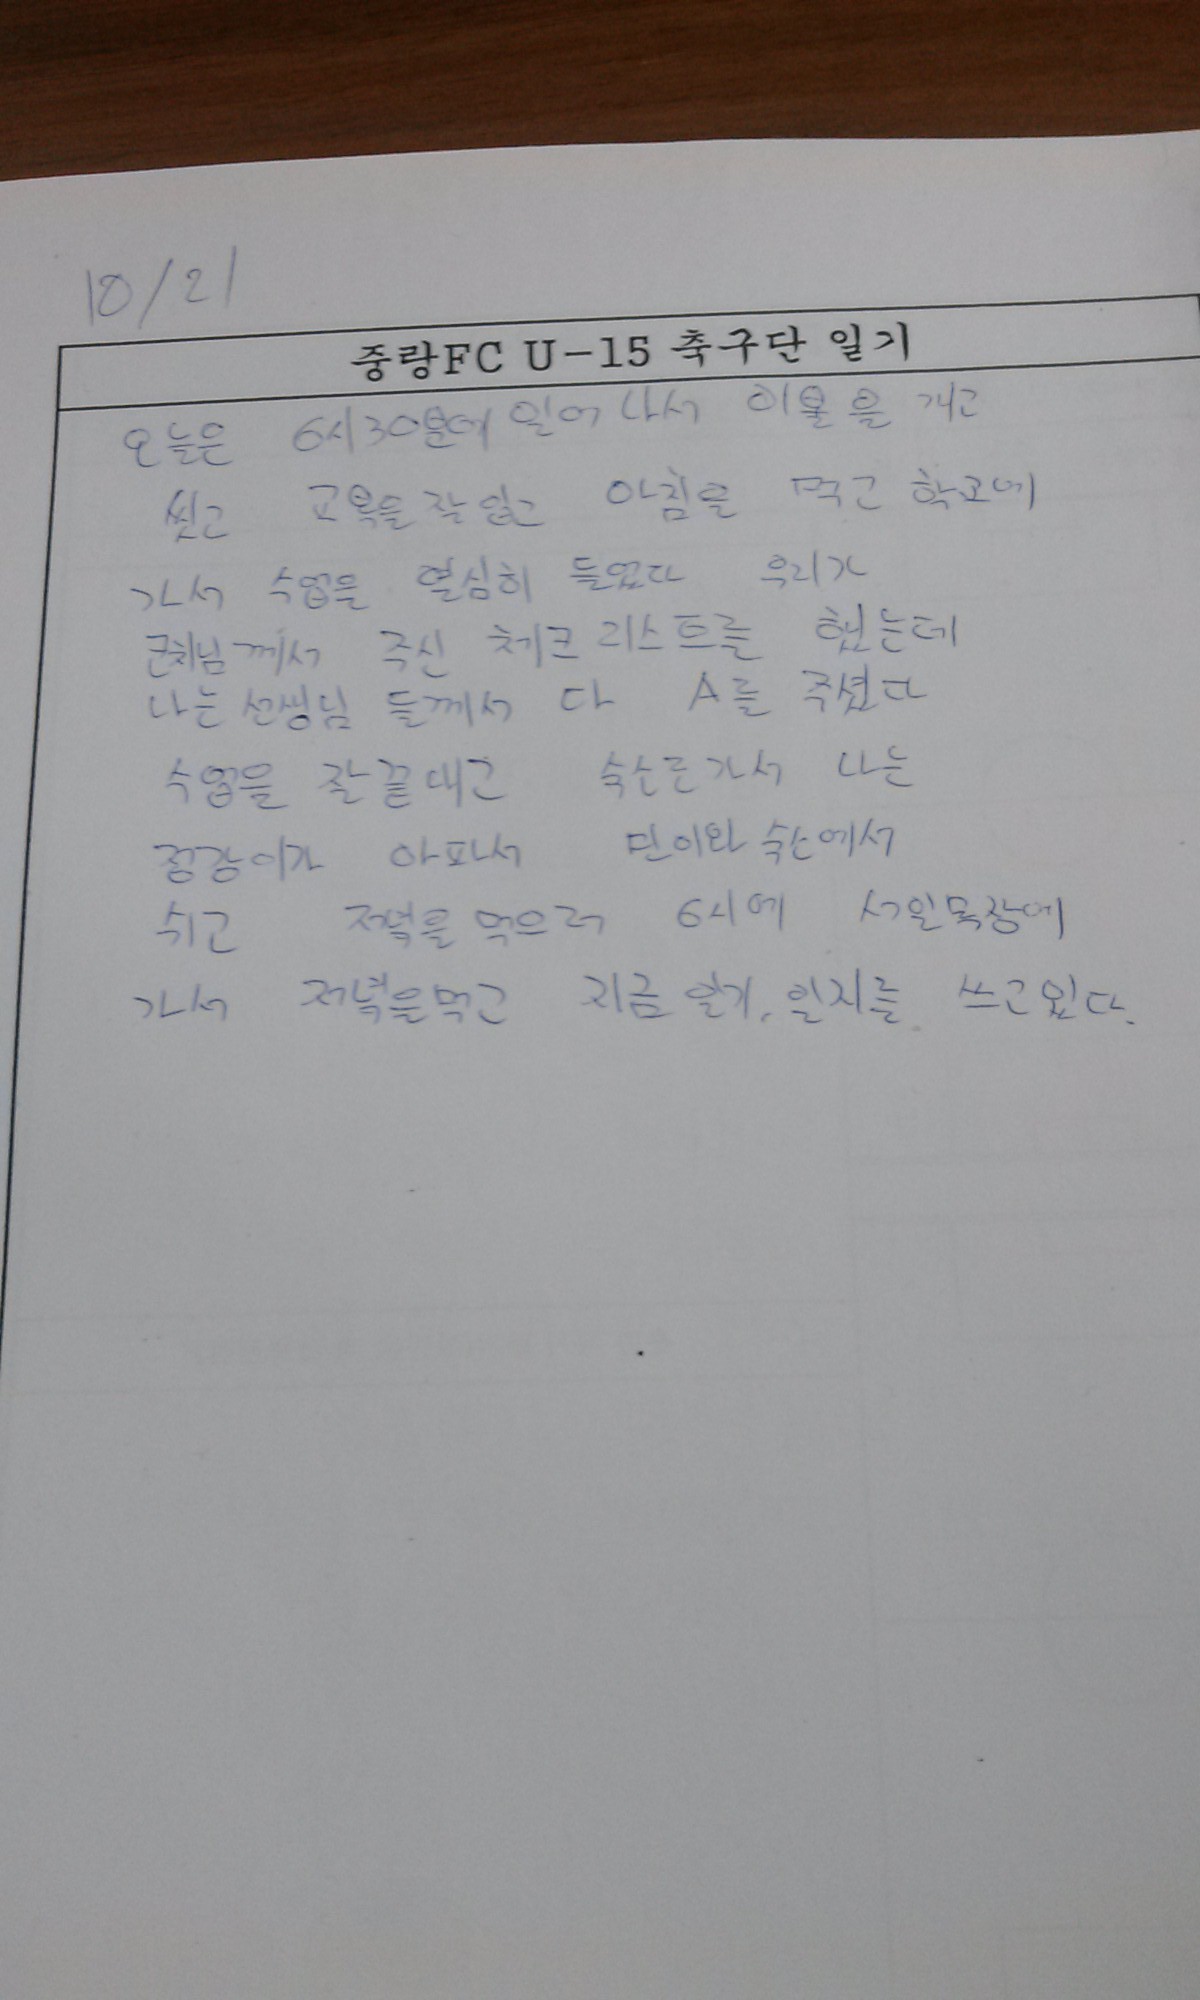 10/21
중랑FC U-15 축구단 일기
오늘은 6시30분에 일어나서 이불을 개고
씻고 교복을 잘입고 아침을 먹고 학교에
가서 수업을 열심히 들었다 우리가
코치님께서 주신 체크리스트를 했는데
나는 선생님 들께서 다 A를 주셨다
수업을 잘끝내고 숙소로가서 나는
정강이가 아파서 민이와 숙소에서
쉬고 저녁을 먹으러 6시에 서인목장에
가서 저녁을먹고 지금 일기, 일지를 쓰고있다.